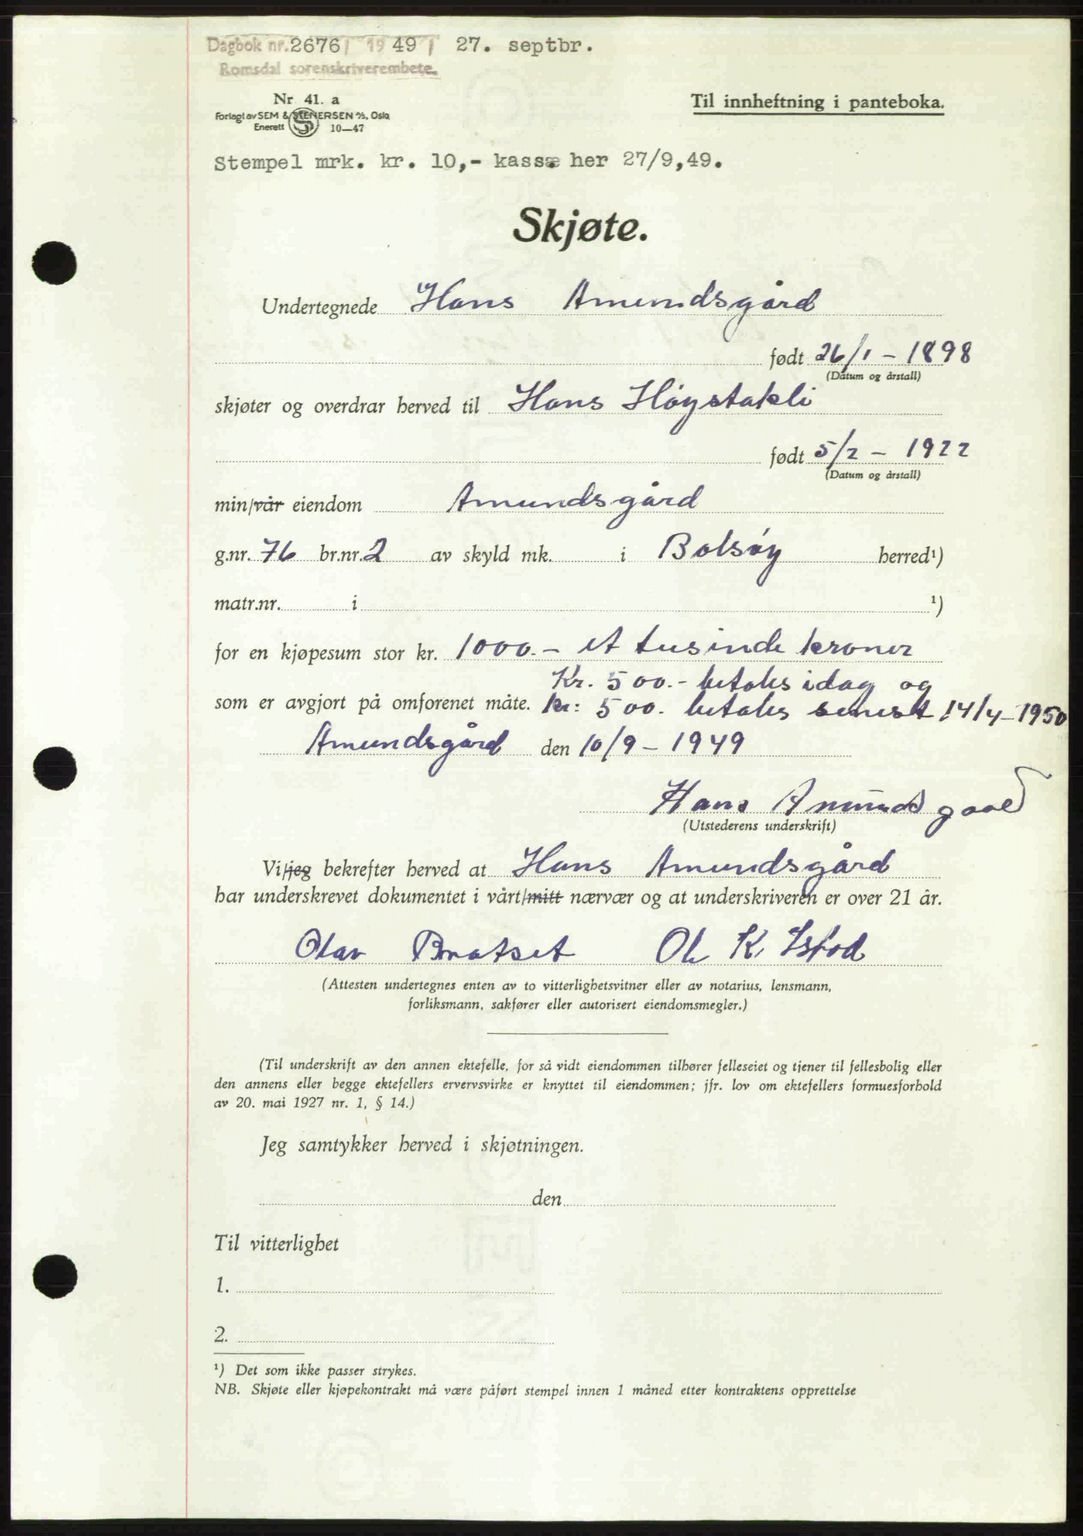 Dagbok nr. 2676 / 1949 / 27. septbr.
Romsdal sorenskriverembete.
Nr 41. a
Til innheftning i panteboka.
Forlagt av SEM & STENERSEN A/S, Oslo
Enerett 10—47
Stempel mrk. kr. 10,- kassæ her 27/9,49.
Skjøte.
Undertegnede Hans Amundsgård
født 26/1 - 1898
(Datum og årstall)
skjøter og overdrar herved til Hans Høystakli
født 5/2 - 1922
(Datum og årstall)
min/vår eiendom Amundsgård
g.nr. 76 br.nr. 2 av skyld mk. i Bolsøy herred¹)
matr.nr. i ¹)
for en kjøpesum stor kr. 1000.- et tusinde kroner
Kr. 500.- betales idag og
som er avgjort på omforenet måte. kr: 500. betales senest 14/4-1950
Amundsgård den 10/9 - 1949
Hans Amundsgaard
(Utstederens underskrift)
Vi/jeg bekrefter herved at Hans Amundsgård
har underskrevet dokumentet i vårt/mitt nærvær og at underskriveren er over 21 år.
Olav Bratset Ole K. Istad
(Attesten undertegnes enten av to vitterlighetsvitner eller av notarius, lensmann,
forliksmann, sakfører eller autorisert eiendomsmegler.)
(Til underskrift av den annen ektefelle, for så vidt eiendommen tilhører felleseiet og tjener til fellesbolig eller
den annens eller begge ektefellers ervervsvirke er knyttet til eiendommen; jfr. lov om ektefellers formuesforhold
av 20. mai 1927 nr. 1, § 14.)
Jeg samtykker herved i skjøtningen.
den
Til vitterlighet
1.
2.
¹) Det som ikke passer strykes.
NB. Skjøte eller kjøpekontrakt må være påført stempel innen 1 måned etter kontraktens opprettelse